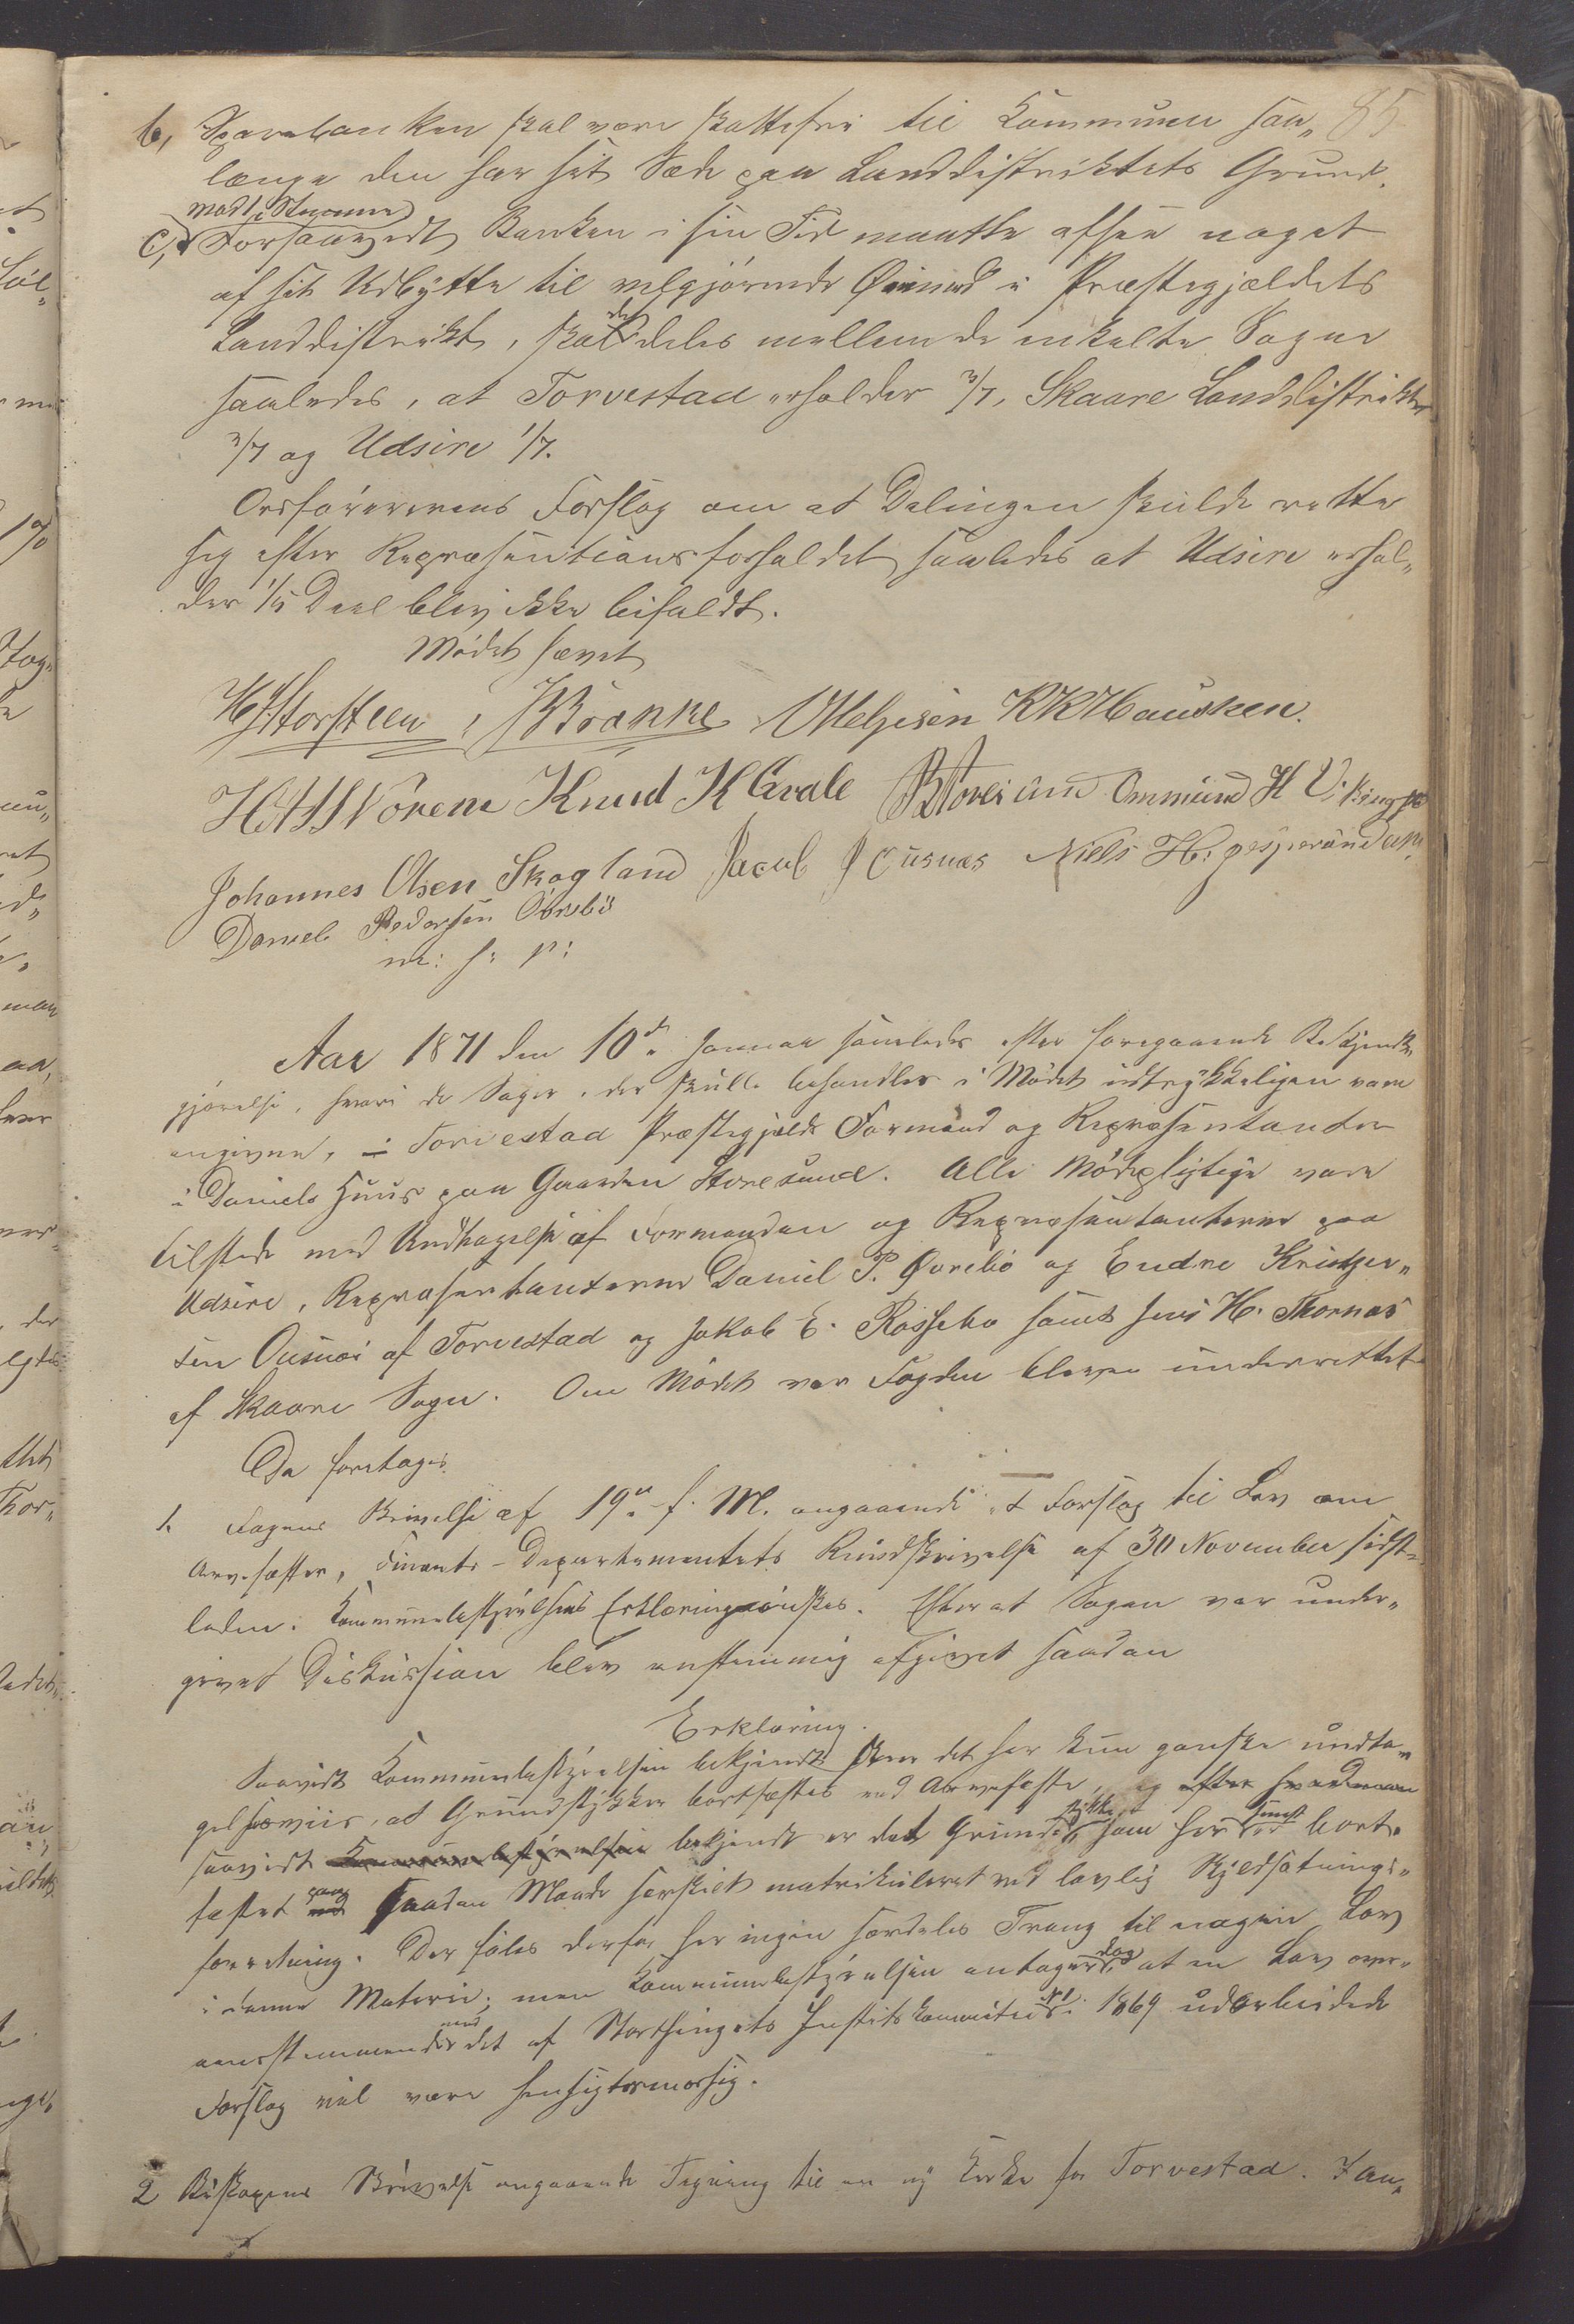 85
b, Sparebanken skal være skattefri til Kommunen saa„
længe den har sit Sæde paa Landdistriktets Grund.
mod 1 Stemme
c, Forsaavidt Banken i sin Tid maatte afsee noget
af sit Udbytte til velgjørende Øiemed i Præstegjældets
Landdistrikt, skal det deles mellem de enkelte Sogne
saaledes, at Torvestad erholder 3/7, Skaare Landdistrikt
3/7 og Udsire 1/7.
Ordførerens Forslag om at Delingen skulde rette
sig efter Repræsentionsforholdet saaledes at Udsire erhol„
der 1/5 Deel blev ikke bifaldt.
Mødet hævet
H Storsteen, Brønne Helgesen K K Hausken.
H Nørem Knud K Hvale Ommund H Viking
Johannes Olsen Skogland Jacob J Ousnes Niels H.
Daniel Pedersen Øvrebø
m: f: P:
Aar 1871 den 10de Januar samledes efter foregaaende Bekjendt„
gjørelse, hvori de Sager, der skulle behandles i Mødet udtrykkeligen vare
angivne, i Torvestad Præstegjelds Formænd og Repræsentanter
i Daniels Huus paa Gaarden Storesund. Alle Mødepligtige vare
tilstede med Undtagelse af Formanden og Repræsentanterne paa
Udsire, Repræsentanterne Daniel P. Øvrebø og Endre Kristen„
sen Ousnæs af Torvestad og Jakob E. Rossebø samt Jens H. Thornæs
af Skaare Sogn. Om Mødet var Fogden bleven underrettet
Da foretoges
1. Fogdens Skrivelse af 19de f. M. angaaende et Forslag til Lov om
Arvefæster, Finants-Departementets Rundskrivelse af 30 November sidst„
leden. Kommunebestyrelsens Erklæring ønskes. Efterat Sagen var under„
givet Diskussion blev enstemmig afgivet saadan
Erklæring.
Saavidt Kommunebestyrelsen bekjendt skeer det her kun ganske undta„
gelsesviis, at Grundstykker bortfæstes ved Arvefæste, og efter hvad man
saavidt Kommunebestyrelsen bekjendt er det Grundstykke, som her sidst er bort„
fæstet paa saadan Maade særskilt matrikuleret ved lovlig Skyldsætnings„
forretning. Der føles derfor her ingen særdeles Trang til nogen Lov
i denne Materie; men Kommunebestyrelsen antager dog, at en Lov over„
ensstemmende med det af Storthingets Justitskommitee No 1 i 1869 udarbeidede
Forslag vil være hensigtsmæssig.
2 Biskopens Skrivelse angaaende Tegning til en ny Kirke for Torvestad. I an„